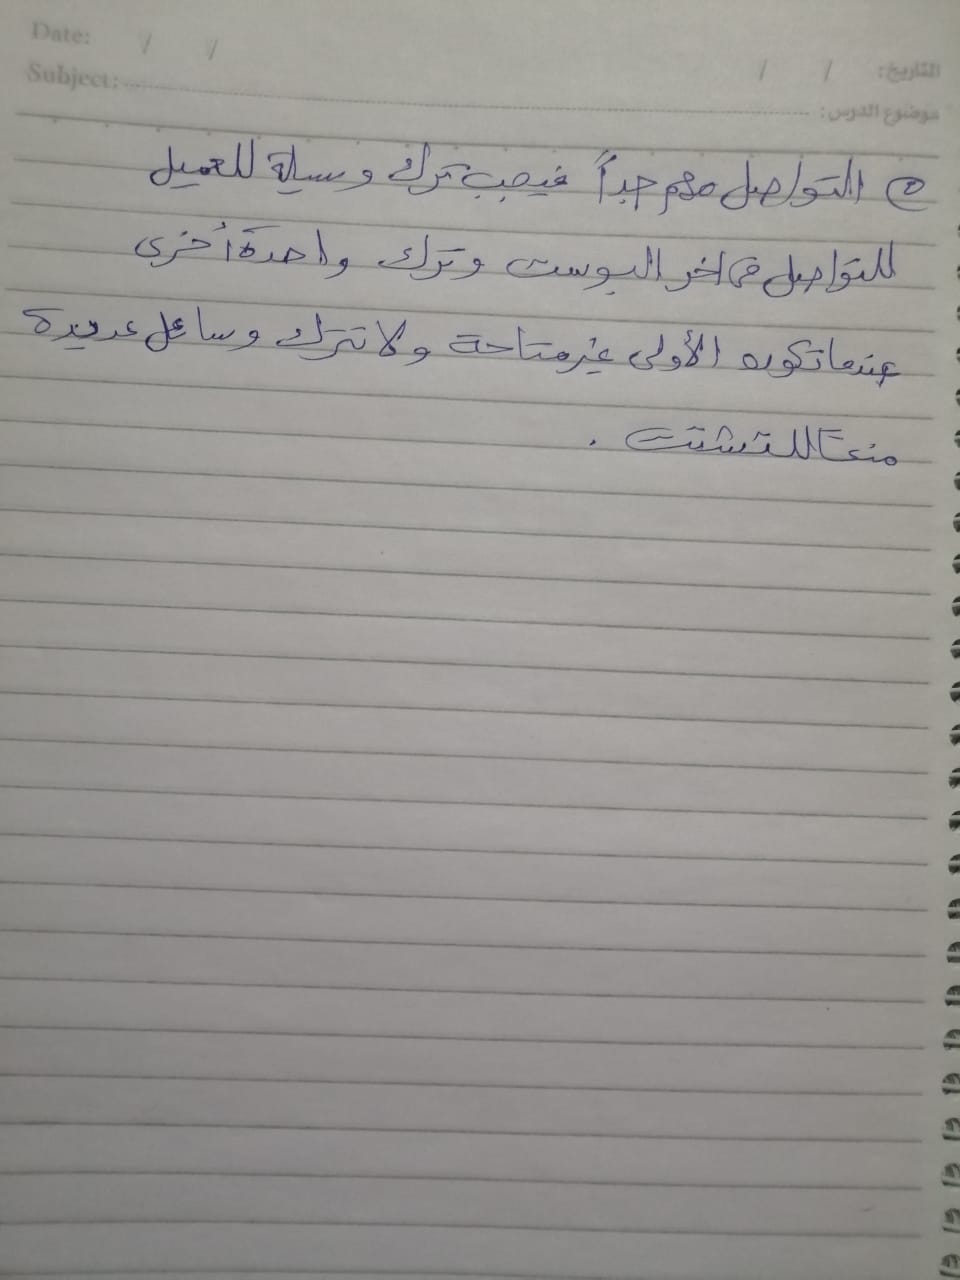 Date: / /
التاريخ: / /
Subject:
موضوع الدرس:
التواصل مهم جداً فيجب ترك وسيلة للعميل
للتواصل في اخر البوست وترك واحدة أخرى
عندما تكون الأولى غير متاحة ولا تترك وسائل عديدة
منعاً للتشتت .